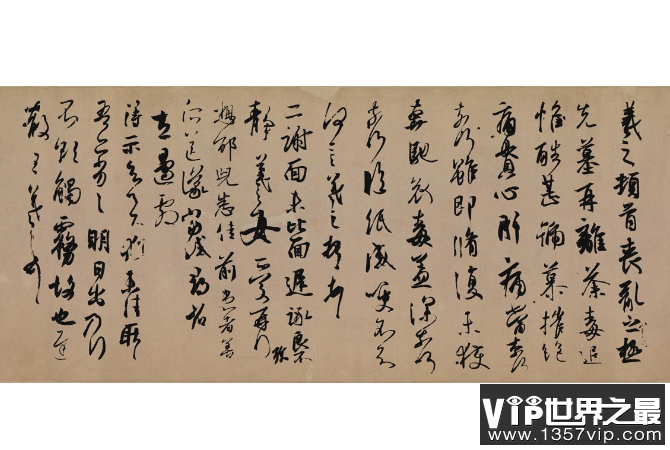 羲之頓首喪亂之極
先墓再離荼毒追
惟酷甚號慕摧絕
痛貫心肝痛當奈何
奈何雖即脩復未獲
奔馳哀毒益深奈何
奈何臨紙感哽不知
何言羲之頓首頓首
二謝面未比面遲詠良不
靜羲之女愛再拜
想邵兒悉佳前患者善
所送議當試尋省
左邊劇
得示知足下猶未佳耿耿
吾亦劣劣明日出乃行
不欲觸霧故也遲
散王羲之頓首
VIP世界之最
www.1357vip.com